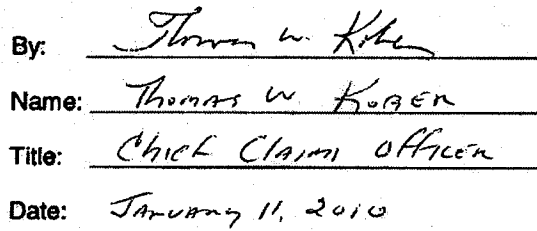 By: Thomas W. Kober
Name: Thomas W Kober
Title: Chief Claims Officer
Date: January 11, 2010